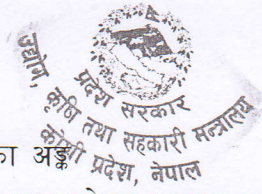 प्रदेश सरकार
उद्योग, कृषि तथा सहकारी मन्त्रालय
कोशी प्रदेश, नेपाल
अङ्क